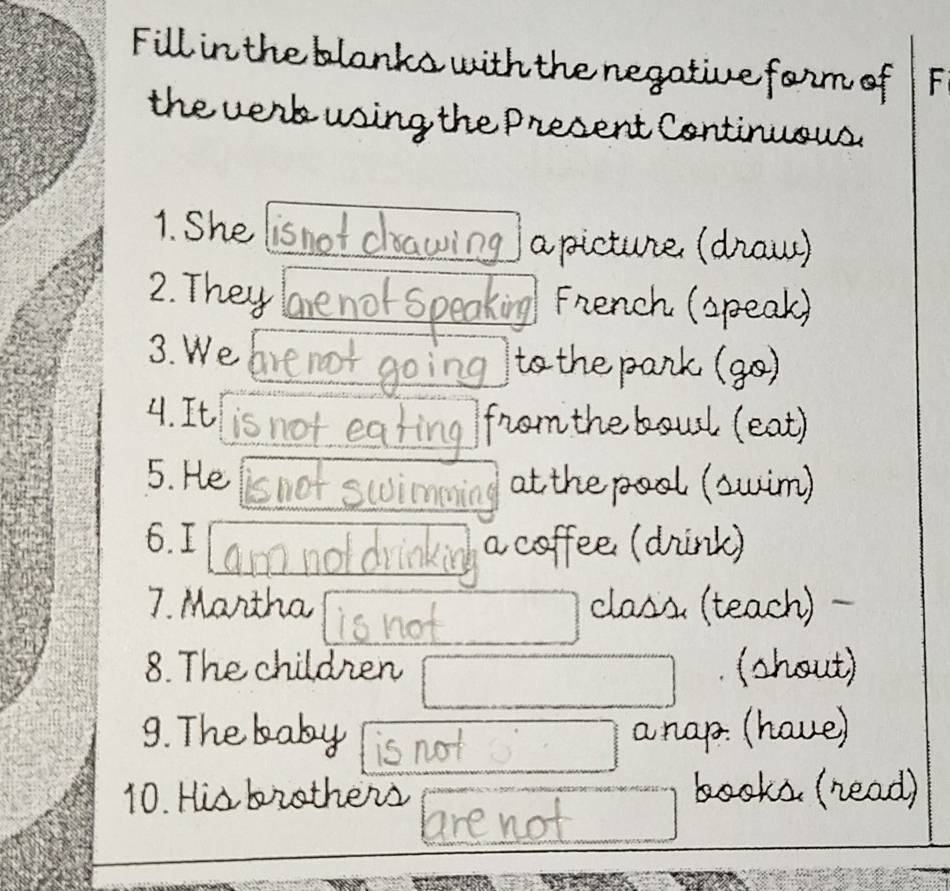 Fill in the blanks with the negative form of
the verb using the Present Continuous.
F
1. She is not drawing a picture. (draw)
2. They are not speaking French. (speak)
3. We are not going to the park. (go)
4. It is not eating from the bowl. (eat)
5. He is not swimming at the pool. (swim)
6. I am not drinking a coffee. (drink)
7. Martha is not class. (teach) -
8. The children . (shout)
9. The baby is not a nap. (have)
10. His brothers are not books. (read)